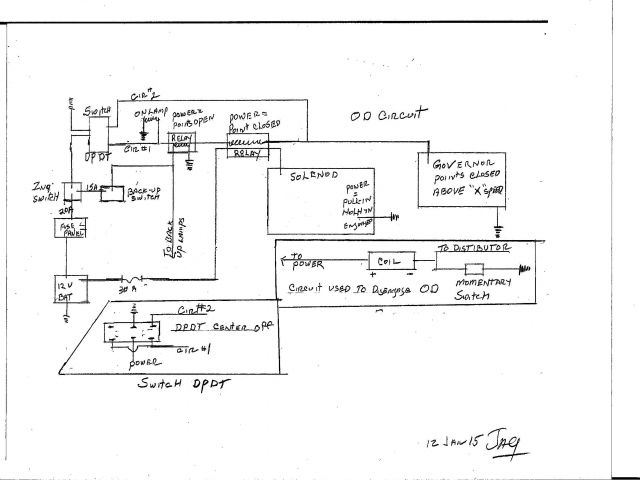 CIR#2
ON LAMP
POWER =
POINTS OPEN
POWER =
POINT CLOSED
OD CIRCUIT
SWITCH
RELAY
CIR #1
DPDT
RELAY
SOLENOD
GOVERNOR
POINTS CLOSED
ABOVE "X" SPEED
SWITCH
15A
BACK-UP
SWITCH
POWER
=
PULL-IN
HOLD IN
ENGAGED
20A
FUSE
PANEL
TO BACK
UP LAMPS
TO DISTIBUTOR
TO
POWER
COIL
+ -
12 V
BAT
30 A
MOMENTARY
SWITCH
CIRCUIT USED TO DISENGAGE OD
CIR#2
DPDT CENTER OFF
CIR #1
POWER
SWITCH DPDT
12 JAN 15 JAG